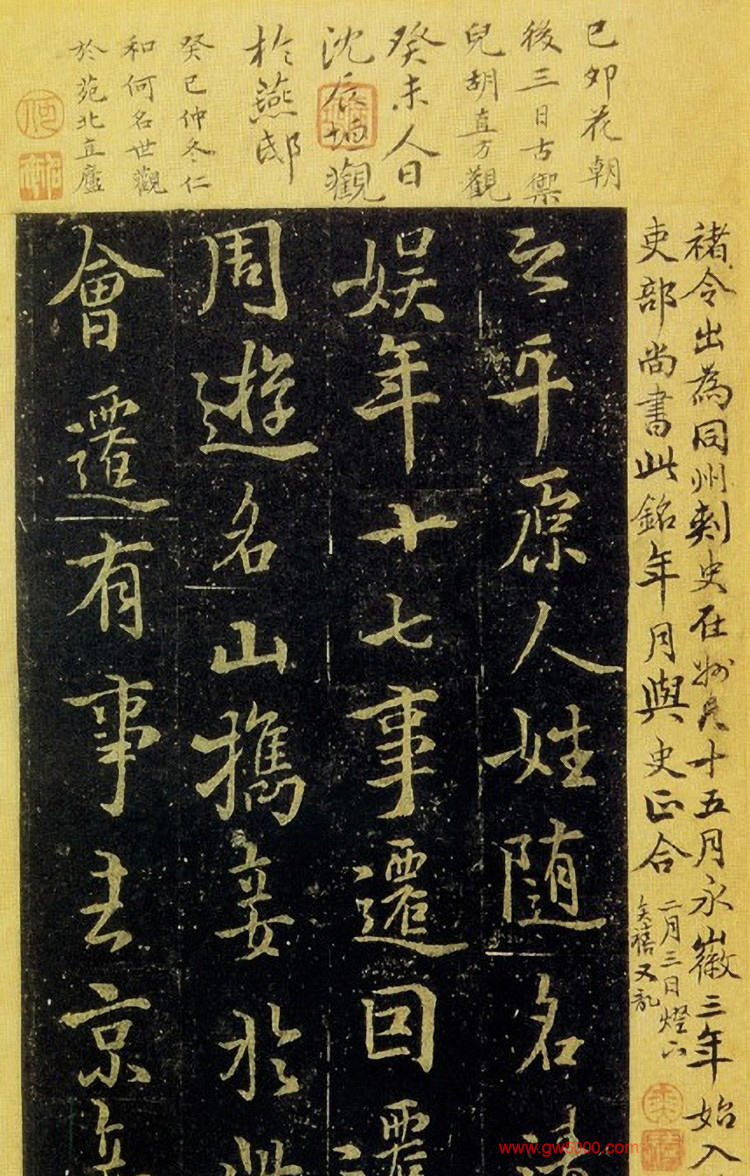 己卯花朝
後三日古禦
兒胡直方觀
癸未人日
沈
觀
於燕邸
癸巳仲冬仁
和何名世觀
於苑北立廬
褚令出為同州刺史在州凡十五月永徽三年始入
吏部尚書此銘年月與史正合
二月三日燈下
奕禧又記
之平原人姓隨名清
娱年十七事遷回遷
周遊名山攜妾於此
會遷有事去京
www.gw5000.com